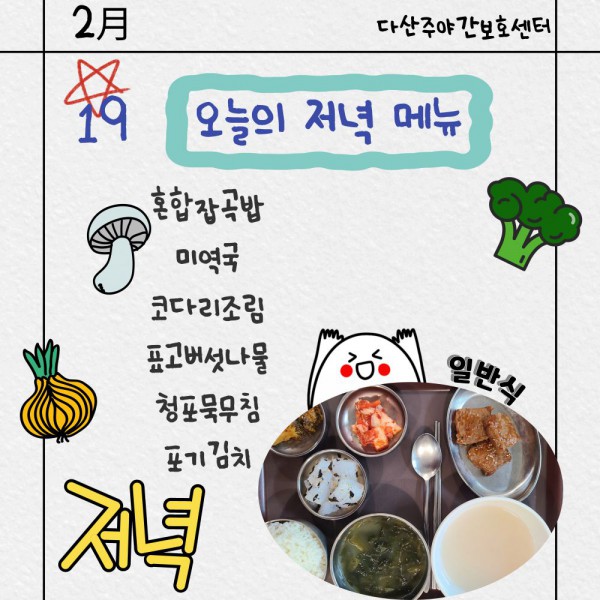 2月
다산주야간보호센터
19
오늘의 저녁 메뉴
혼합잡곡밥
미역국
코다리조림
표고버섯나물
청포묵무침
포기김치
일반식
저녁